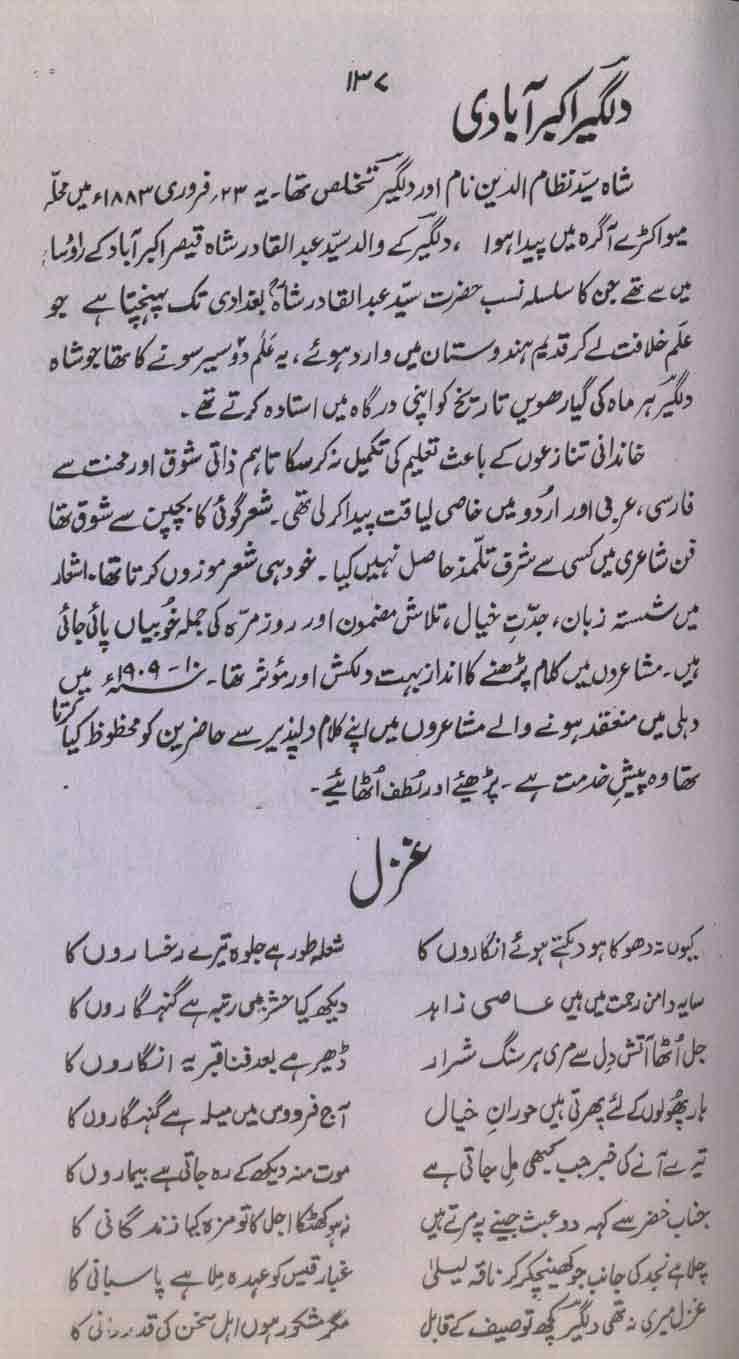 ۱۳۷
دلگیر اکبر آبادی
شاہ سیّد نظام الدین نام اور دلگیر تخلص تھا۔ یہ ۲۳؍ فروری ۱۸۸۳ء میں محلہ
میواکٹرے آگرہ میں پیدا ہوا ، دلگیر کے والد سیّد عبدالقادر شاہ قیصر اکبر آباد کے رؤسا
میں سے تھے جن کا سلسلہ نسب حضرت سیّد عبدالقادر شاہؒ بغدادی تک پہنچتا ہے جو
علَم خلافت لے کر قدیم ہندوستان میں وارد ہوئے، یہ علَم دو سیر سونے کا تھا جو شاہ
دلگیر ہر ماہ کی گیارھویں تاریخ کو اپنی درگاہ میں استادہ کرتے تھے۔
خاندانی تنازعوں کے باعث تعلیم کی تکمیل نہ کر سکا تاہم ذاتی شوق اور محنت سے
فارسی، عربی اور اُردو میں خاصی لیاقت پیدا کر لی تھی۔ شعر گوئی کا بچپن سے شوق تھا
فن شاعری میں کسی سے شرفِ تلمذ حاصل نہیں کیا۔ خود ہی شعر موزوں کرتا تھا۔ اشعار
میں شستہ زبان، جدّتِ خیال، تلاش مضمون اور روز مرّہ کی جملہ خُوبیاں پائی جاتی
ہیں۔ مشاعروں میں کلام پڑھنے کا انداز بہت دلکش اور مؤثر تھا۔ ۱۰-۱۹۰۹ء میں
دہلی میں منعقد ہونے والے مشاعروں میں اپنے کلام دلپذیر سے حاضرین کو محظوظ کیا کرتا
تھا وہ پیشِ خدمت ہے۔ پڑھیئے اور لُطف اُٹھائیے۔
غزل
کیوں نہ دھوکا ہو دہکتے ہوئے انگاروں کا شعلہ طور ہے جلوہ تیرے رخساروں کا
سایہ دامن رحمت میں ہیں عاصی زاہد دیکھ کیا حشر میں رتبہ ہے گنہگاروں کا
جل اُٹھا آتش دِل سے مری ہر سنگ شرار ڈھیر ہے بعد فنا قبر پہ انگاروں کا
ہار پھُولوں کے لئے پھرتی ہیں حورانِ خیال آج فردوس میں میلہ ہے گنہگاروں کا
تیرے آنے کی خبر جب کبھی مِل جاتی ہے موت منہ دیکھ کے رہ جاتی ہے بیماروں کا
جناب خضر سے کہہ دو عبث جینے پہ مرتے ہیں نہ ہو کھٹکا اجل کا تو مزہ کیا زندگانی کا
چلا ہے نجد کی جانب جو کھینچکر ناقہ لیلیٰ غبار قیس کو عہدہ مِلا ہے پاسبانی کا
غزل میری نہ تھی دلگیر کچھ توصیف کے قابل مگر مشکور ہوں اہل سخن کی قدردانی کا